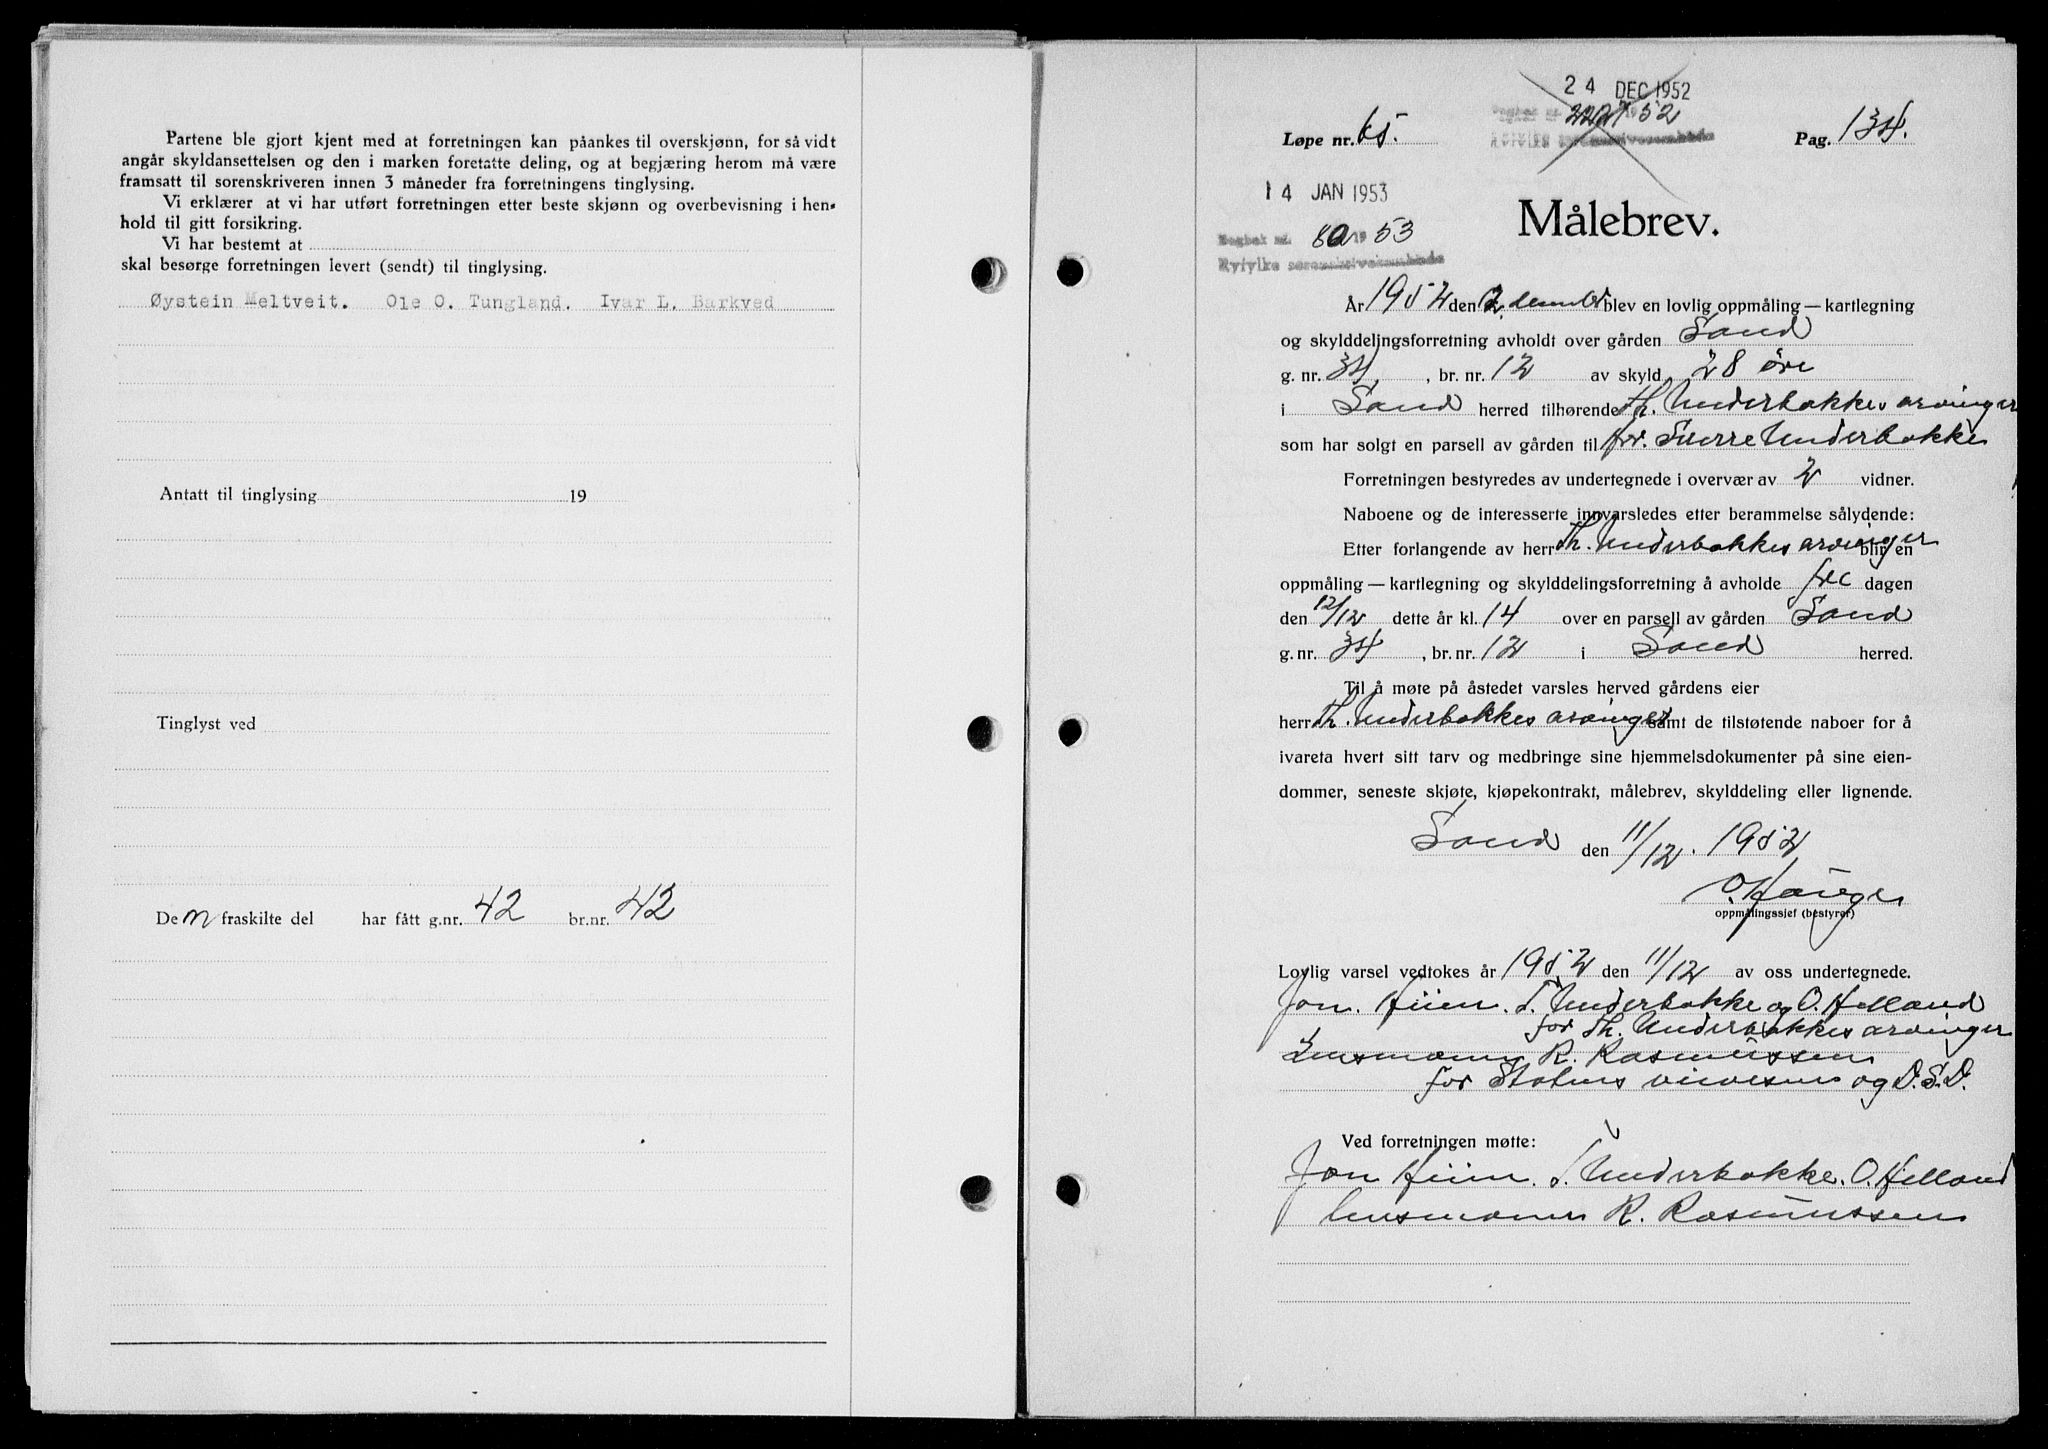 Partene ble gjort kjent med at forretningen kan påankes til overskjønn, for så vidt
angår skyldansettelsen og den i marken foretatte deling, og at begjæring herom må være
framsatt til sorenskriveren innen 3 måneder fra forretningens tinglysing.
Vi erklærer at vi har utført forretningen etter beste skjønn og overbevisning i hen-
hold til gitt forsikring.
Vi har bestemt at
skal besørge forretningen levert (sendt) til tinglysing.
Øystein Meltveit. Ole O. Tungland. Ivar L. Barkved
Antatt til tinglysing 19
Tinglyst ved
De n fraskilte del har fått g.nr. 42 br.nr. 42
24 DEC 1952
Dagbok nr. 1952
Ryfylke sorenskriverembede
Løpe nr. 65. Pag. 134.
14 JAN 1953
Dagbok nr. 80 19 53
Ryfylke sorenskriverembede
Målebrev.
År 1952 den 12. desember blev en lovlig oppmåling — kartlegning
og skylddelingsforretning avholdt over gården Sand
g. nr. 34 , br. nr. 12 av skyld 28 øre
i Sand herred tilhørende Th. Underbakkes arvinger
som har solgt en parsell av gården til frv. Sverre Underbakke
Forretningen bestyredes av undertegnede i overvær av 2 vidner.
Naboene og de interesserte innvarsledes etter berammelse sålydende:
Etter forlangende av herr Th. Underbakkes arvinger blir en
oppmåling — kartlegning og skylddelingsforretning å avholde fre dagen
den 12/12 dette år kl. 14 over en parsell av gården Sand
g. nr. 34 , br. nr. 12 i Sand herred.
Til å møte på åstedet varsles herved gårdens eier
herr Th. Underbakkes arvinger samt de tilstøtende naboer for å
ivareta hvert sitt tarv og medbringe sine hjemmelsdokumenter på sine eien-
dommer, seneste skjøte, kjøpekontrakt, målebrev, skylddeling eller lignende.
Sand den 11/12. 1952
O. Hauge
oppmålingssjef (bestyrer)
Lovlig varsel vedtokes år 1952 den 11/12 av oss undertegnede.
Jon. Hiim. S. Underbakke og O. Helland
for Th. Underbakkes arvinger
Lensmann R. Rasmussen
for Statens veivesen og D.S.D.
Ved forretningen møtte:
Jon Hiim. S. Underbakke. O. Helland
lensmann R. Rasmussen